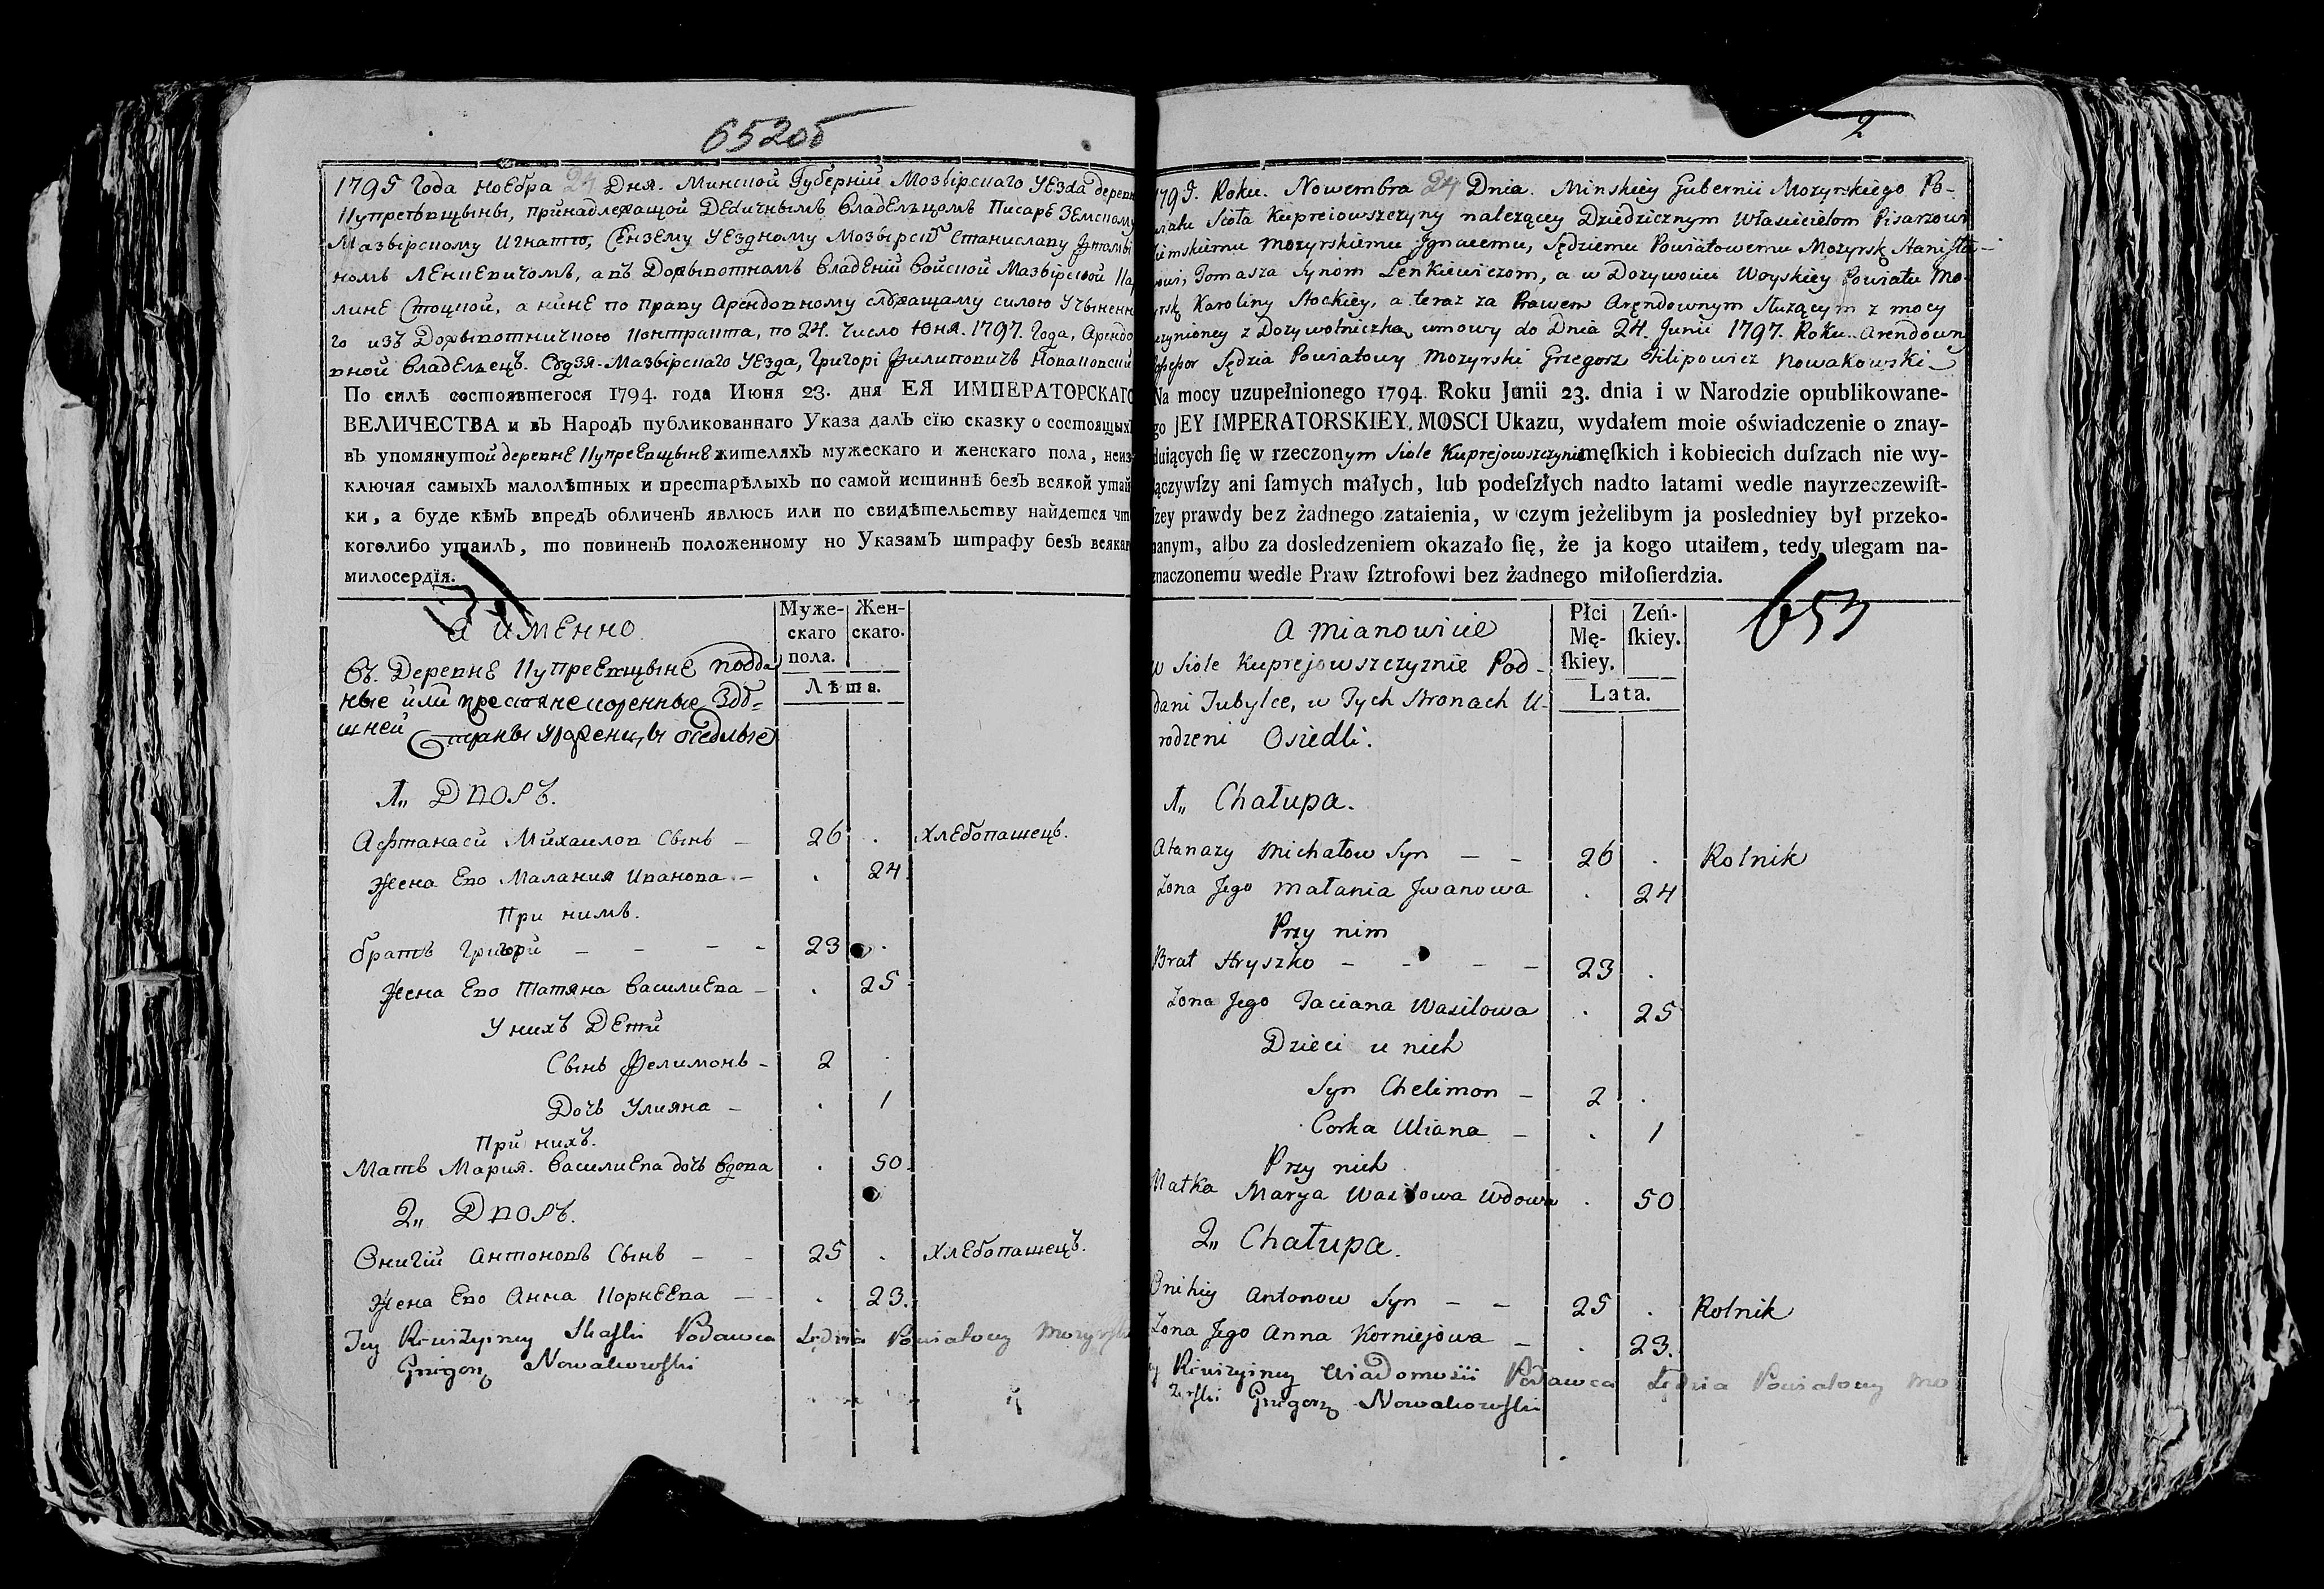 652об
1795 Года Ноебра 24 Дня. Минской Губерніи Мозырскаго Уезда дерепн
Купрепщыны, принадлежащой Дедичнымъ Владельцомъ Писарѣ Земскому
Мазырскому Игнатю, Сензему Уездному Мозырск Станиславу Фомы
номъ Ленкевичомъ, а въ Дожывотномъ Владеніи Войской Мазырской Ка
лине Стоцкой, а нине по праву Арендовному служащему силою Учыненн
го изъ Дожывотничкою Контракта, по 24. Число Юня. 1797. Года, Арендо
вной Владелецъ. Судзя Мазырскаго Уезда, Григорі Филиповичъ Новаковскій
По силѣ состоявшегося 1794. года Июня 23. дня ЕЯ ИМПЕРАТОРСКАГО
ВЕЛИЧЕСТВА и въ Народъ публикованнаго Указа далъ сїю сказку о состоящыхъ
въ упомянутой деревне Купреевщыне жителяхъ мужескаго и женскаго пола, неиз
ключая самыхъ малолѣтныхъ и престарѣлыхъ по самой истиннѣ безъ всякой утай
ки, а буде кѣмъ впредъ обличенъ явлюсь или по свидѣтельству найдется что
коголибо утаилъ, то повиненъ положенному по Указамъ штрафу безъ всякаго
милосердїя.
а именно
Муже-
скаго
пола.
Жен-
скаго.
Лѣта.
Въ Деревне Купреевщыне подда
ные или крестяне коренные Здѣ-
шней Страны уроженцы оседлые
1,, Дворъ.
Афтанаси Михаилов Сынъ — 26 . Хлебопашецъ.
Жена Ево Малания Иванова — . 24.
При нимъ.
братъ Григори — — — — 23 .
Жена Ево Татяна Василиева — . 25
У нихъ Дети
Сынъ Фелимонъ — 2 .
Дочь Улияна — . 1
При нихъ.
Матъ Мария. Василиева дочь Вдова . 50.
2,, Дворъ.
Онигій Антоновъ Сынъ — — 25 . Хлебопашецъ.
Жена Ево Анна Корнеева — — . 23.
Tey Rewizyiney Skaski Podawca Sędzia Powiatowy Mozyrski
Grzegorz Nowakowski
2
1795. Roku. Nowembra 24 Dnia. Minskiey Gubernii Mozyrskiego Po-
wiatu Sioła Kupreiowszczyny nalezącey Dziedzicznym Włascicielom Pisarzowi
Ziemskiemu Mozyrskiemu Ignacemu, Sędziemu Powiatowemu Mozyrsk Stanisła-
wowi, Tomasza Synom Lenkiewiczom, a w Dozywociu Woyskiey Powiatu Mo-
zyrsk Karoliny Stockiey, a teraz za Prawem Aręndownym Służącym z mocy
uczynioney z Dozywotniczką umowy do Dnia 24. Junii 1797. Roku. Arendown
Possessor Sędzia Powiatowy Mozyrski Grzegorz Filipowicz Nowakowski
Na mocy uzupełnionego 1794. Roku Junii 23. dnia i w Narodzie opublikowane-
go JEY IMPERATORSKIEY. MOSCI Ukazu, wydałem moie oświadczenie o znay-
duiących ſię w rzeczonym Siole Kuprejowszczynie męſkich i kobiecich duſzach nie wy-
łączywſzy ani ſamych małych, lub podeſzłych nadto latami wedle nayrzeczewiſt-
ſzey prawdy bez żadnego zataienia, w czym jeżelibym ja posledniey był przeko-
nanym, albo za dosledzeniem okazało ſię, że ja kogo utaiłem, tedy ulegam na-
znaczonemu wedle Praw ſztrofowi bez żadnego miłoſierdzia.
653
A mianowicie
Płci
Mę-
ſkiey.
Zeń-
ſkiey.
Lata.
w Siole Kuprejowszczyznie Pod-
dani Tubylce, w Tych Stronach U-
rodzeni Osiedli.
1,, Chałupa.
Atanazy Michałow Syn — — 26 . Rolnik
Zona Jego Małania Iwanowa . 24
Przy nim
Brat Hryszko — — — — 23 .
Zona Jego Taciana Wasilowa . 25
Dzieci u nich
Syn Chelimon — 2 .
Corka Uliana — . 1
Przy nich
Matka Marya Wasilowa Wdowa . 50
2,, Chałupa.
Onihiy Antonow Syn — — 25 . Rolnik
Zona Jego Anna Korniejowa — . 23.
Tey Rewizyiney Wiadomosii Podawca Sędzia Powiatowy Mo
zyrski Grzegorz Nowakowski